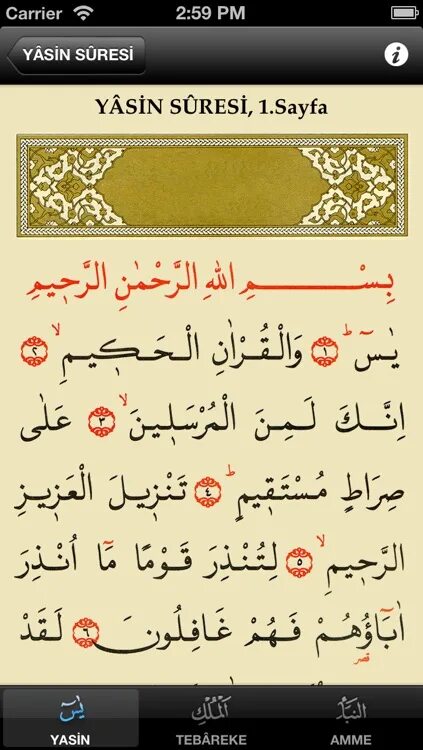 Carrier 2:59 PM
YÂSİN SÛRESİ
YÂSİN SÛRESİ, 1.Sayfa
بِسْمِ اللّٰهِ الرَّحْمٰنِ الرَّحٖيمِ
يٰسٓ ۚ ﴿١﴾ وَالْقُرْاٰنِ الْحَكٖيمِ ۙ ﴿٢﴾
اِنَّكَ لَمِنَ الْمُرْسَلٖينَ ۙ ﴿٣﴾ عَلٰى
صِرَاطٍ مُسْتَقٖيمٍ ؕ ﴿٤﴾ تَنْزٖيلَ الْعَزٖيزِ
الرَّحٖيمِ ۙ ﴿٥﴾ لِتُنْذِرَ قَوْمًا مَٓا اُنْذِرَ
اٰبَٓاؤُ۬هُمْ فَهُمْ غَافِلُونَ ﴿٦﴾ لَقَدْ
قصر
يٰسٓ اَلْمُلْكِ النَّبَأِ
YASİN TEBÂREKE AMME